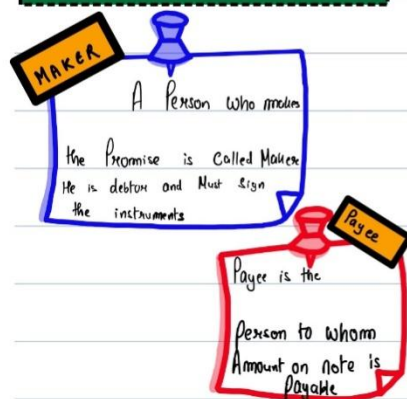 MAKER
A Person who makes
the Promise is Called Maker
He is debtor and Must Sign
the instruments
Payee
Payee is the
Person to whom
Amount on note is
Payable